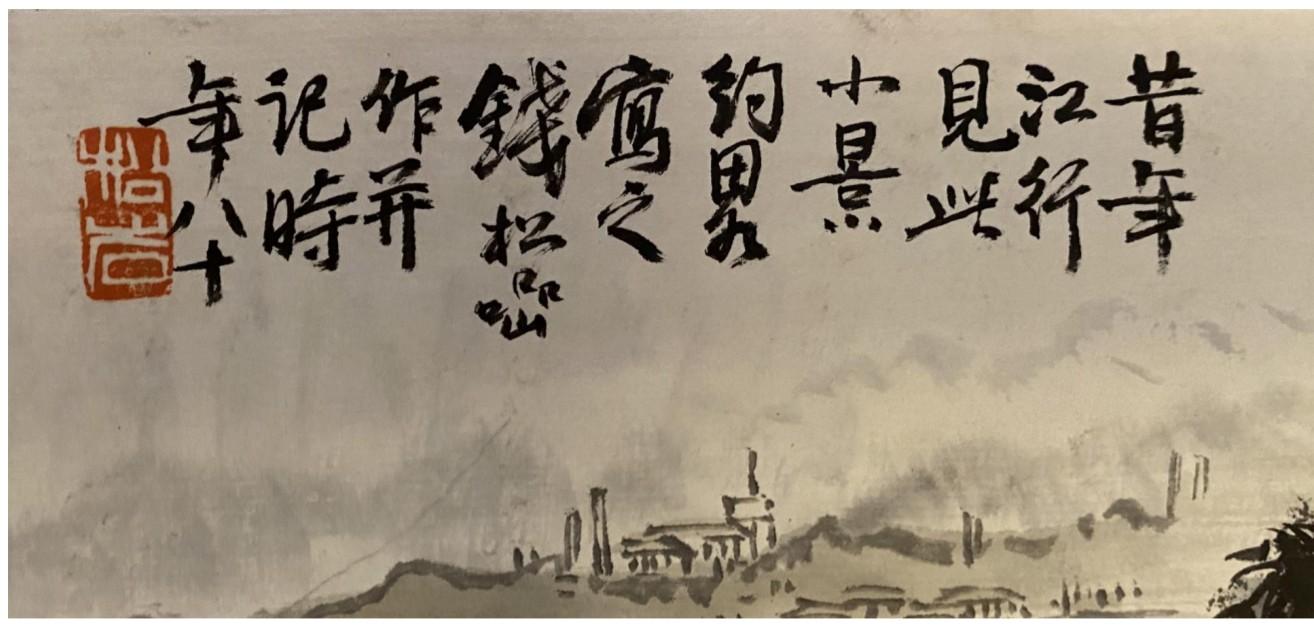 昔年
江行
見此
小景
約畧
寫之
錢松嵒
作并
記時
年八十